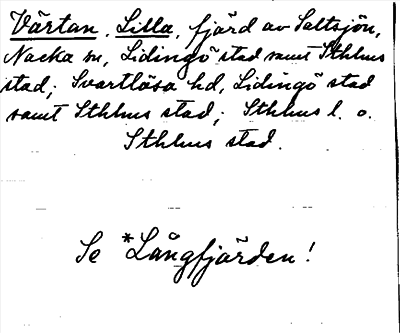 Värtan, Lilla, fjärd av Saltsjön,
Nacka sn, Lidingö stad samt Sthlms
stad; Svartlösa hd, Lidingö stad
samt Sthlms stad; Sthlms l. o.
Sthlms stad.
Se *Långfjärden!